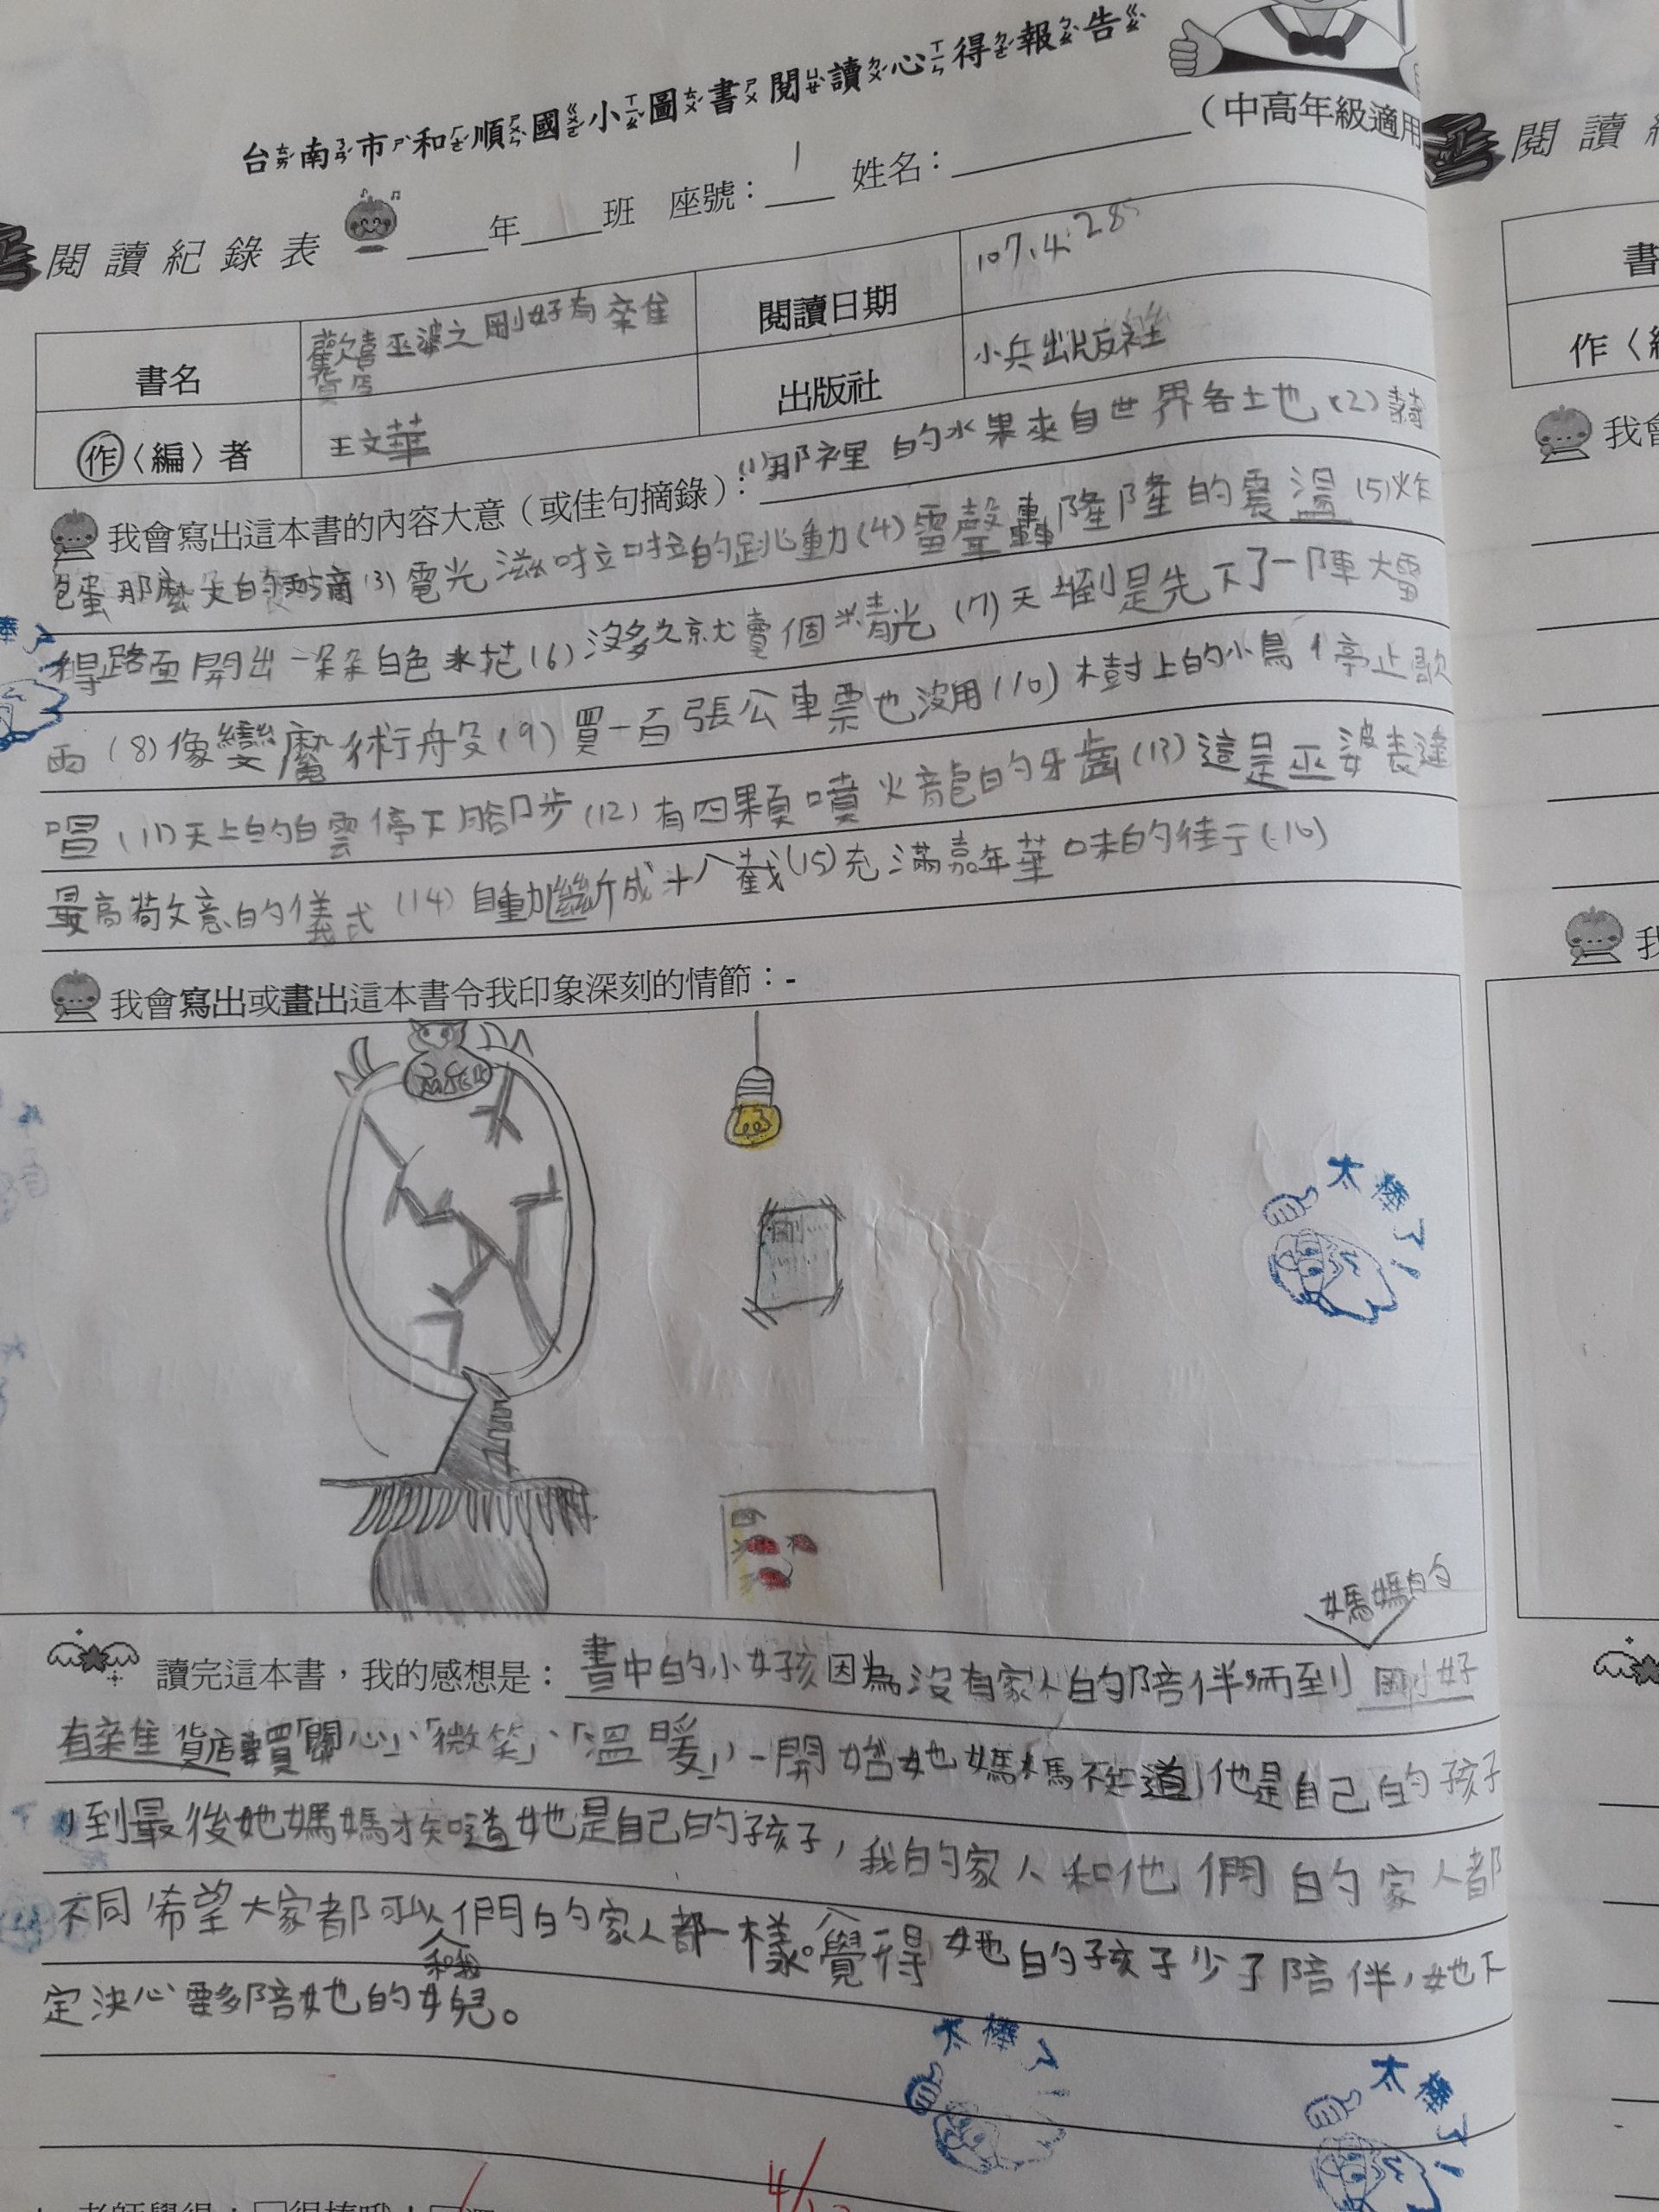 台南市和順國小圖書閱讀心得報告
(中高年級適用
閱讀紀錄表 ___年___班 座號：1 姓名：
書名 歡喜巫婆之剛好有雜貨店 閱讀日期 107.4.28
作〈編〉者 王文華 出版社 小兵出版社
我會寫出這本書的內容大意（或佳句摘錄）：(1)那裡的水果來自世界各土也(2)鴕
蛋那麼大的雨滴(3)電光滋啦啦的跳動(4)雷聲轟隆隆的震盪(5)炸
得路面開出一朵朵白色水花(6)沒多久就賣個精光(7)天上倒是先下了一陣大雷
雨(8)像變魔術般(9)買一百張公車票也沒用(10)樹上的小鳥停止歌
唱(11)天上的白雲停下腳步(12)有四顆噴火龍的牙齒(13)這是巫婆表達
最高敬意的儀式(14)自動斷成十八截(15)充滿嘉年華味的街(16)
我會寫出或畫出這本書令我印象深刻的情節：
太棒了!
媽媽的
讀完這本書，我的感想是：書中的小女孩因為沒有家人的陪伴而到剛好
有雜貨店買「關心」、「微笑」、「溫暖」，一開始她媽媽不知道他是自己的孩子
，到最後她媽媽才知道她是自己的孩子，我的家人和他們的家人都
不同希望大家都可以和我們的家人都一樣。覺得她的孩子少了陪伴，她下
定決心要多陪她的女兒。
太棒了!
太棒了!
閱讀
書
作〈
我會
我